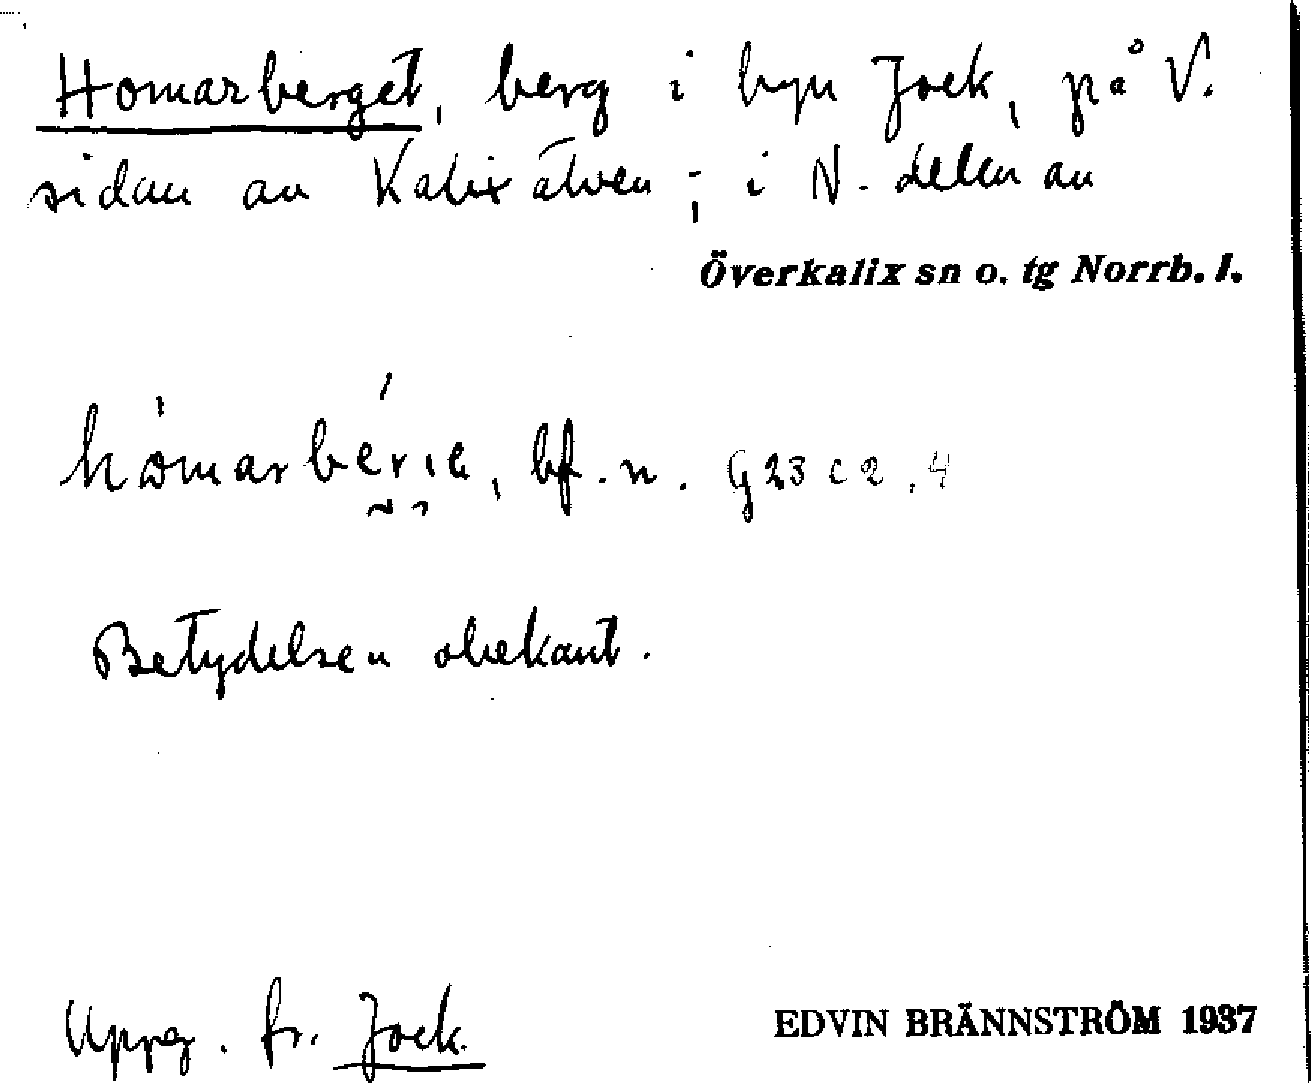 Homarberget, berg i byn Jock, på V.
sidan av Kalix älven; i N. delen av
Överkalix sn o. tg Norrb. l.
bf. n. G23 c2, 4
Betydelsen obekant.
Uppg. fr. Jock.
EDVIN BRÄNNSTRÖM 1937